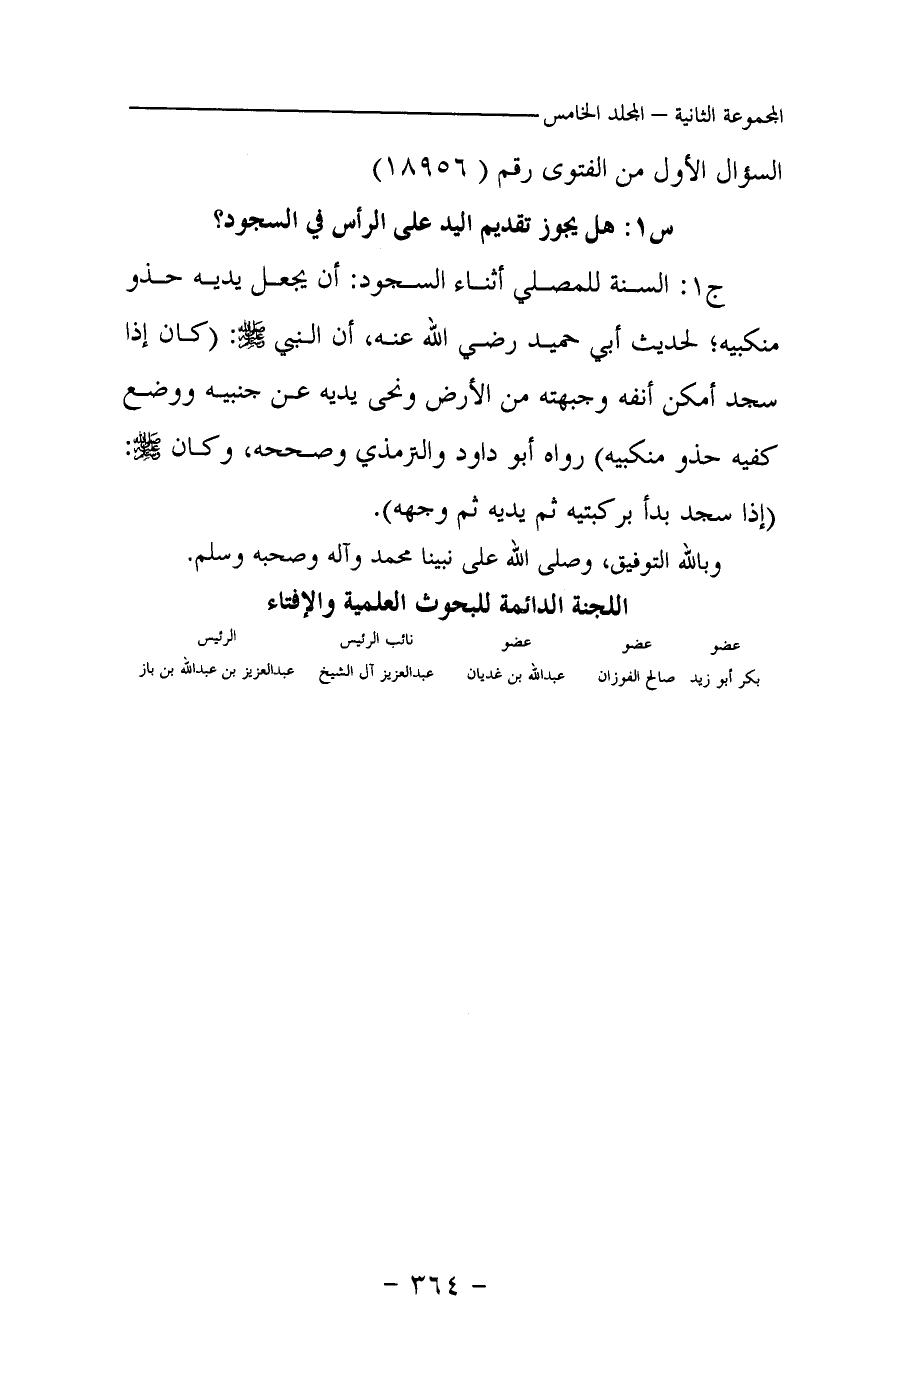 المجموعة الثانية – المجلد الخامس
السؤال الأول من الفتوى رقم ( ١٨٩٥٦)
س١: هل يجوز تقديم اليد على الرأس في السجود؟
ج١: السنة للمصلي أثناء السجود: أن يجعل يديه حذو
منكبيه؛ لحديث أبي حميد رضي الله عنه، أن النبي ﷺ: (كان إذا
سجد أمكن أنفه وجبهته من الأرض ونحى يديه عن جنبيه ووضع
كفيه حذو منكبيه) رواه أبو داود والترمذي وصححه، وكان ﷺ:
(إذا سجد بدأ بركبتيه ثم يديه ثم وجهه).
وبالله التوفيق، وصلى الله على نبينا محمد وآله وصحبه وسلم.
اللجنة الدائمة للبحوث العلمية والإفتاء
عضو عضو عضو نائب الرئيس الرئيس
بكر أبو زيد صالح الفوزان عبدالله بن غديان عبدالعزيز آل الشيخ عبدالعزيز بن عبدالله بن باز
- ٣٦٤ -